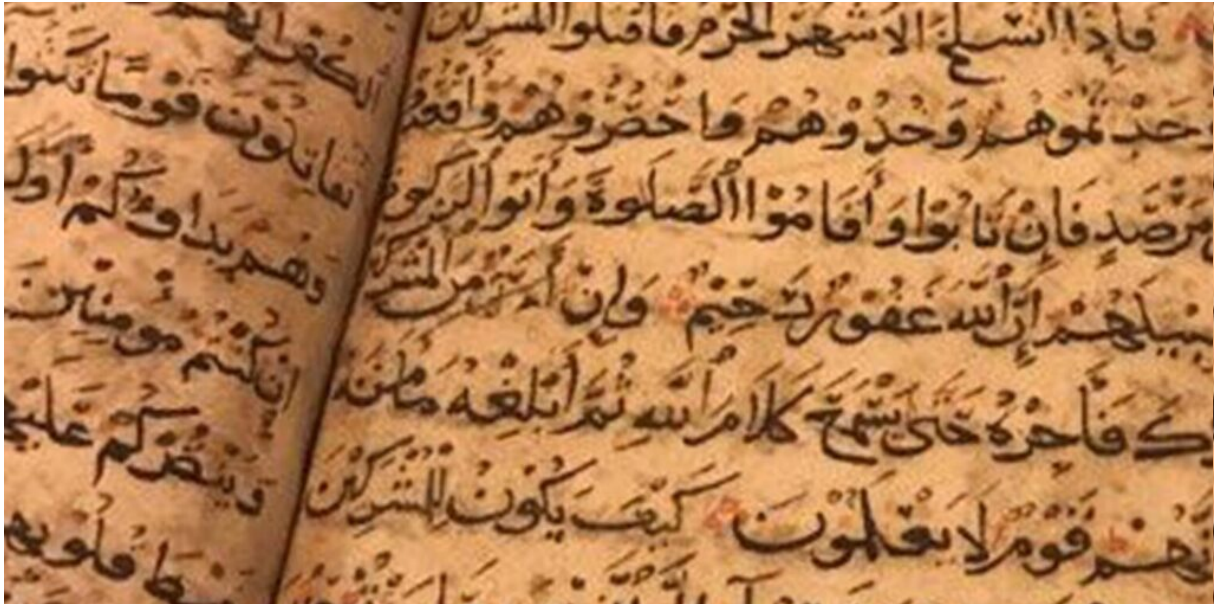 فاذا انسلخ الاشهر الحرم فاقتلوا المشركين
وجدتموهم وخذوهم واحصروهم واقعد
مرصد فان تابوا واقاموا الصلوة واتوا الزكوة
سبيلهم ان الله غفور رحيم وان احد من المشر
ك فاجره حتى يسمع كلام الله ثم ابلغه مامنه
نهم قوم لا يعلمون كيف يكون للمشركين
الكفر انهم
تقاتلون قوما نكثوا
وهم بداوكم اول
ان كنتم مومنين
وينصركم عليهم
يظ قلوبهم